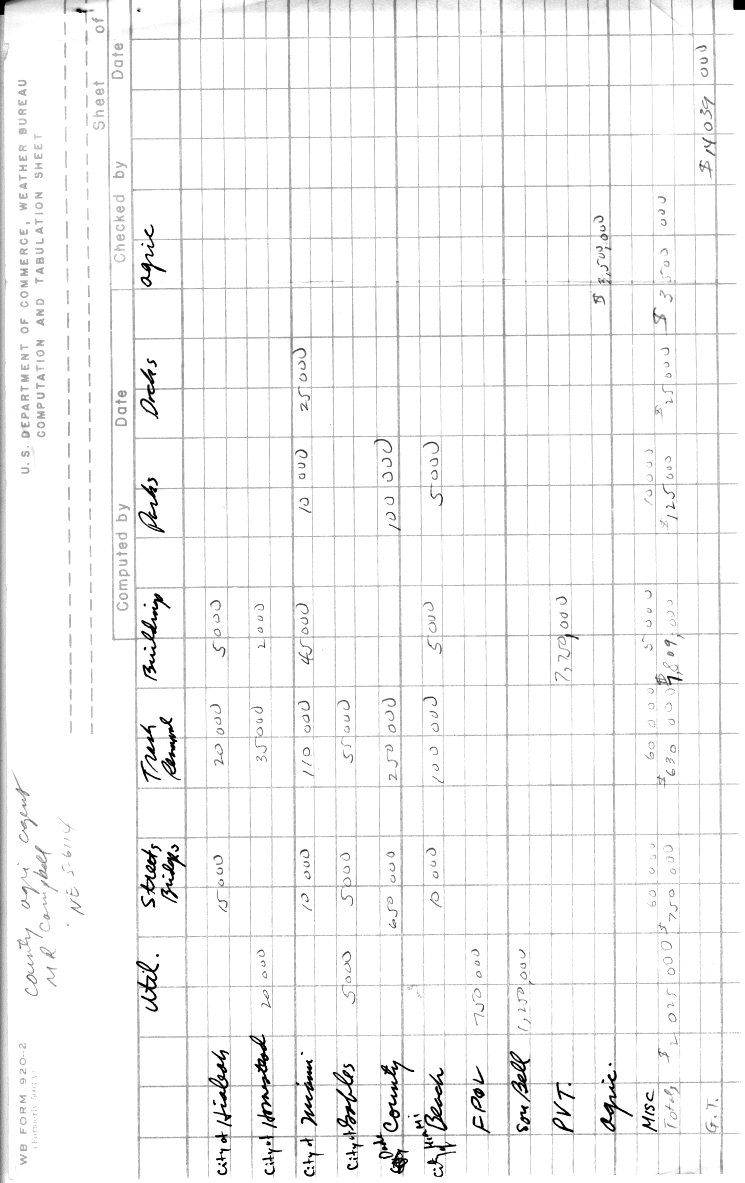 WB FORM 920-2
U. S. DEPARTMENT OF COMMERCE, WEATHER BUREAU
COMPUTATION AND TABULATION SHEET
County agri agent
Mr Campbell
NE 56114
Sheet of
Computed by Date Checked by Date
Util. Streets, Bridges Trash Removal Buildings Parks Docks Agric
City of Hialeah 15000 20000 5000
City of Homestead 20 000 35000 2000
City of Miami 10 000 110 000 45000 10 000 25000
City of Gables 5000 5000 55000
Dade County 650 000 250 000 100 000
City of Mia Mi Beach 10 000 100 000 5000 5000
FP&L 750 000
Sou Bell 1,250,000
PVT. 7,750,000
Agric. $ 3,500,000
Misc 60 000 60 000 5 000 10 000
Totals $ 2 025 000 $ 750 000 $ 630 000 $ 7,809,000 $ 125 000 $ 25 000 $ 3,500 000
G.T. $ 14 039 000